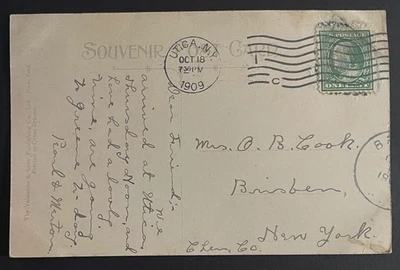 SOUVENIR POST CARD
UTICA, N.Y.
OCT 18
7 30 PM
1909
1
C
U.S. POSTAGE
ONE CENT
Dear Friend:-
We
arrived at Utica
Thursday Noon, and
have had a lovely
time, are going
to Greene to-day.
Pearl & Merton
Mrs. O. B. Cook.
Brisben,
New York.
Chen. Co.